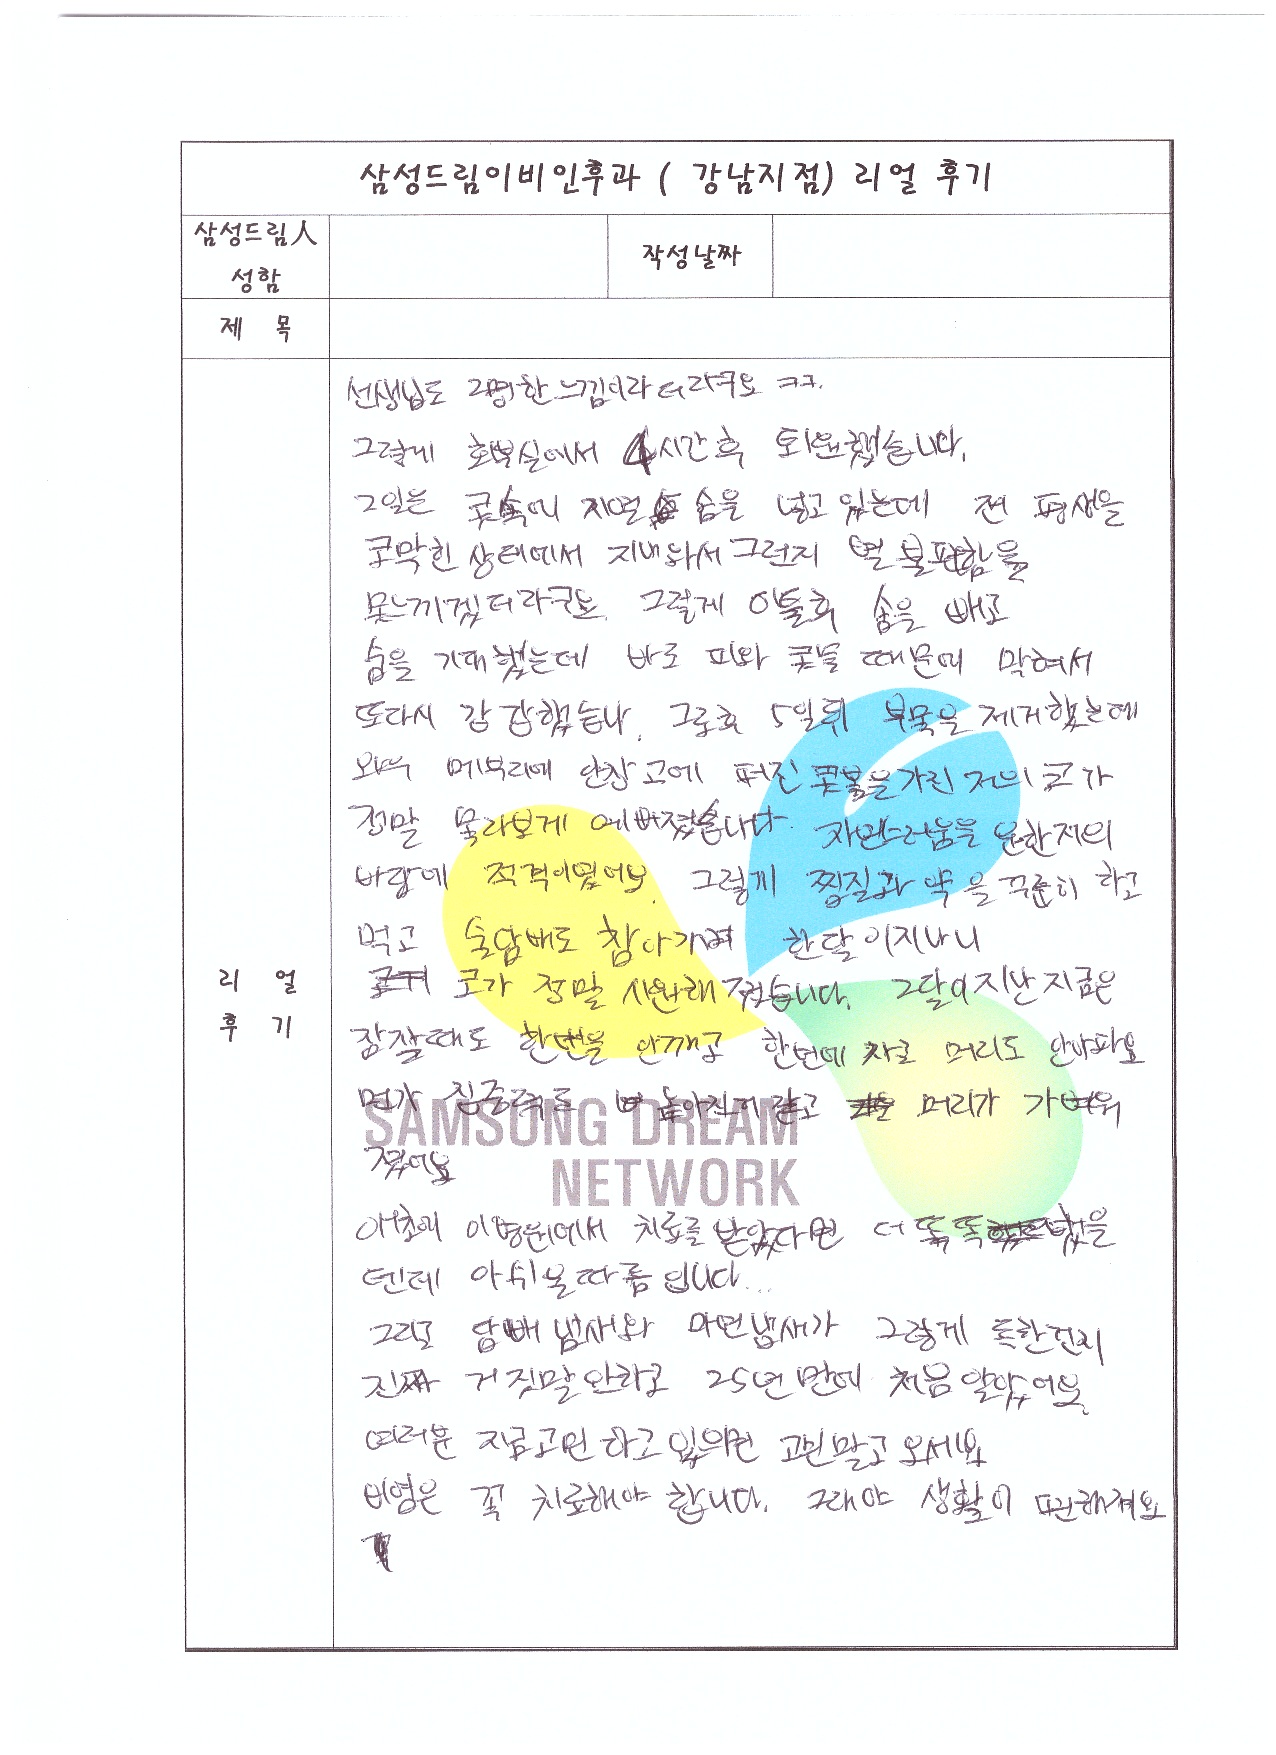 삼성드림이비인후과 ( 강남지점) 리얼 후기
삼성드림人
성함
작성날짜
제 목
리 얼
후 기
선생님도 2명한느낌이라더라구요 ㅋㅋ.
그렇게 회복실에서 4시간후 퇴원했습니다.
2일은 콧속에 지혈 솜을 넣고 있는데 전 평생을
코막힌 상태에서 지내와서그런지 별 불편함을
못느끼겠더라구요. 그렇게 이틀후 솜을 빼고
숨을 기대했는데 바로 피와 콧물 때문에 막혀서
또다시 갑갑했습니다. 그로후 5일뒤 부목을 제거했는데
메부리에 퍼진 콧볼을가린 저의 코가
정말 몰라보게 예뻐졌습니다. 자연스러움을 원한저의
바램에 적격이였어요. 그렇게 찜질과 약을 꾸준히 하고
먹고 술담배도 참아가며 한달이지나니
코가 정말 시원해 졌습니다. 2달이지난 지금은
잠잘때도 한번을 안깨고 한번에 자고 머리도 안아파요
먼가 집중력도 높아진거같고 머리가 가벼워
졌어요
애초에 이병원에서 치료를 받았다면 더 똑똑했을
텐데 아쉬울따름 입니다...
그리고 담배 냄새와 라면냄새가 그렇게 독한건지
진짜 거짓말안하고 25년 만에 처음 알았어요.
여러분 지금고민하고 있으면 고민말고 오세요
비염은 꼭 치료해야 합니다. 그래야 생활이 편해져요
SAMSUNG DREAM
NETWORK